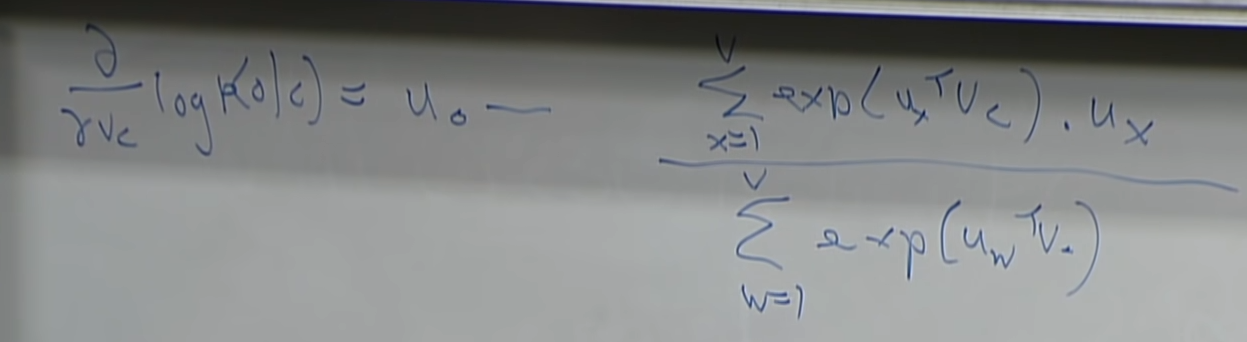 ∂/∂v_c log p(o|c) = u_o — (∑_{x=1}^{V} exp(u_x^T v_c) . u_x) / (∑_{w=1}^{V} exp(u_w^T v_c))